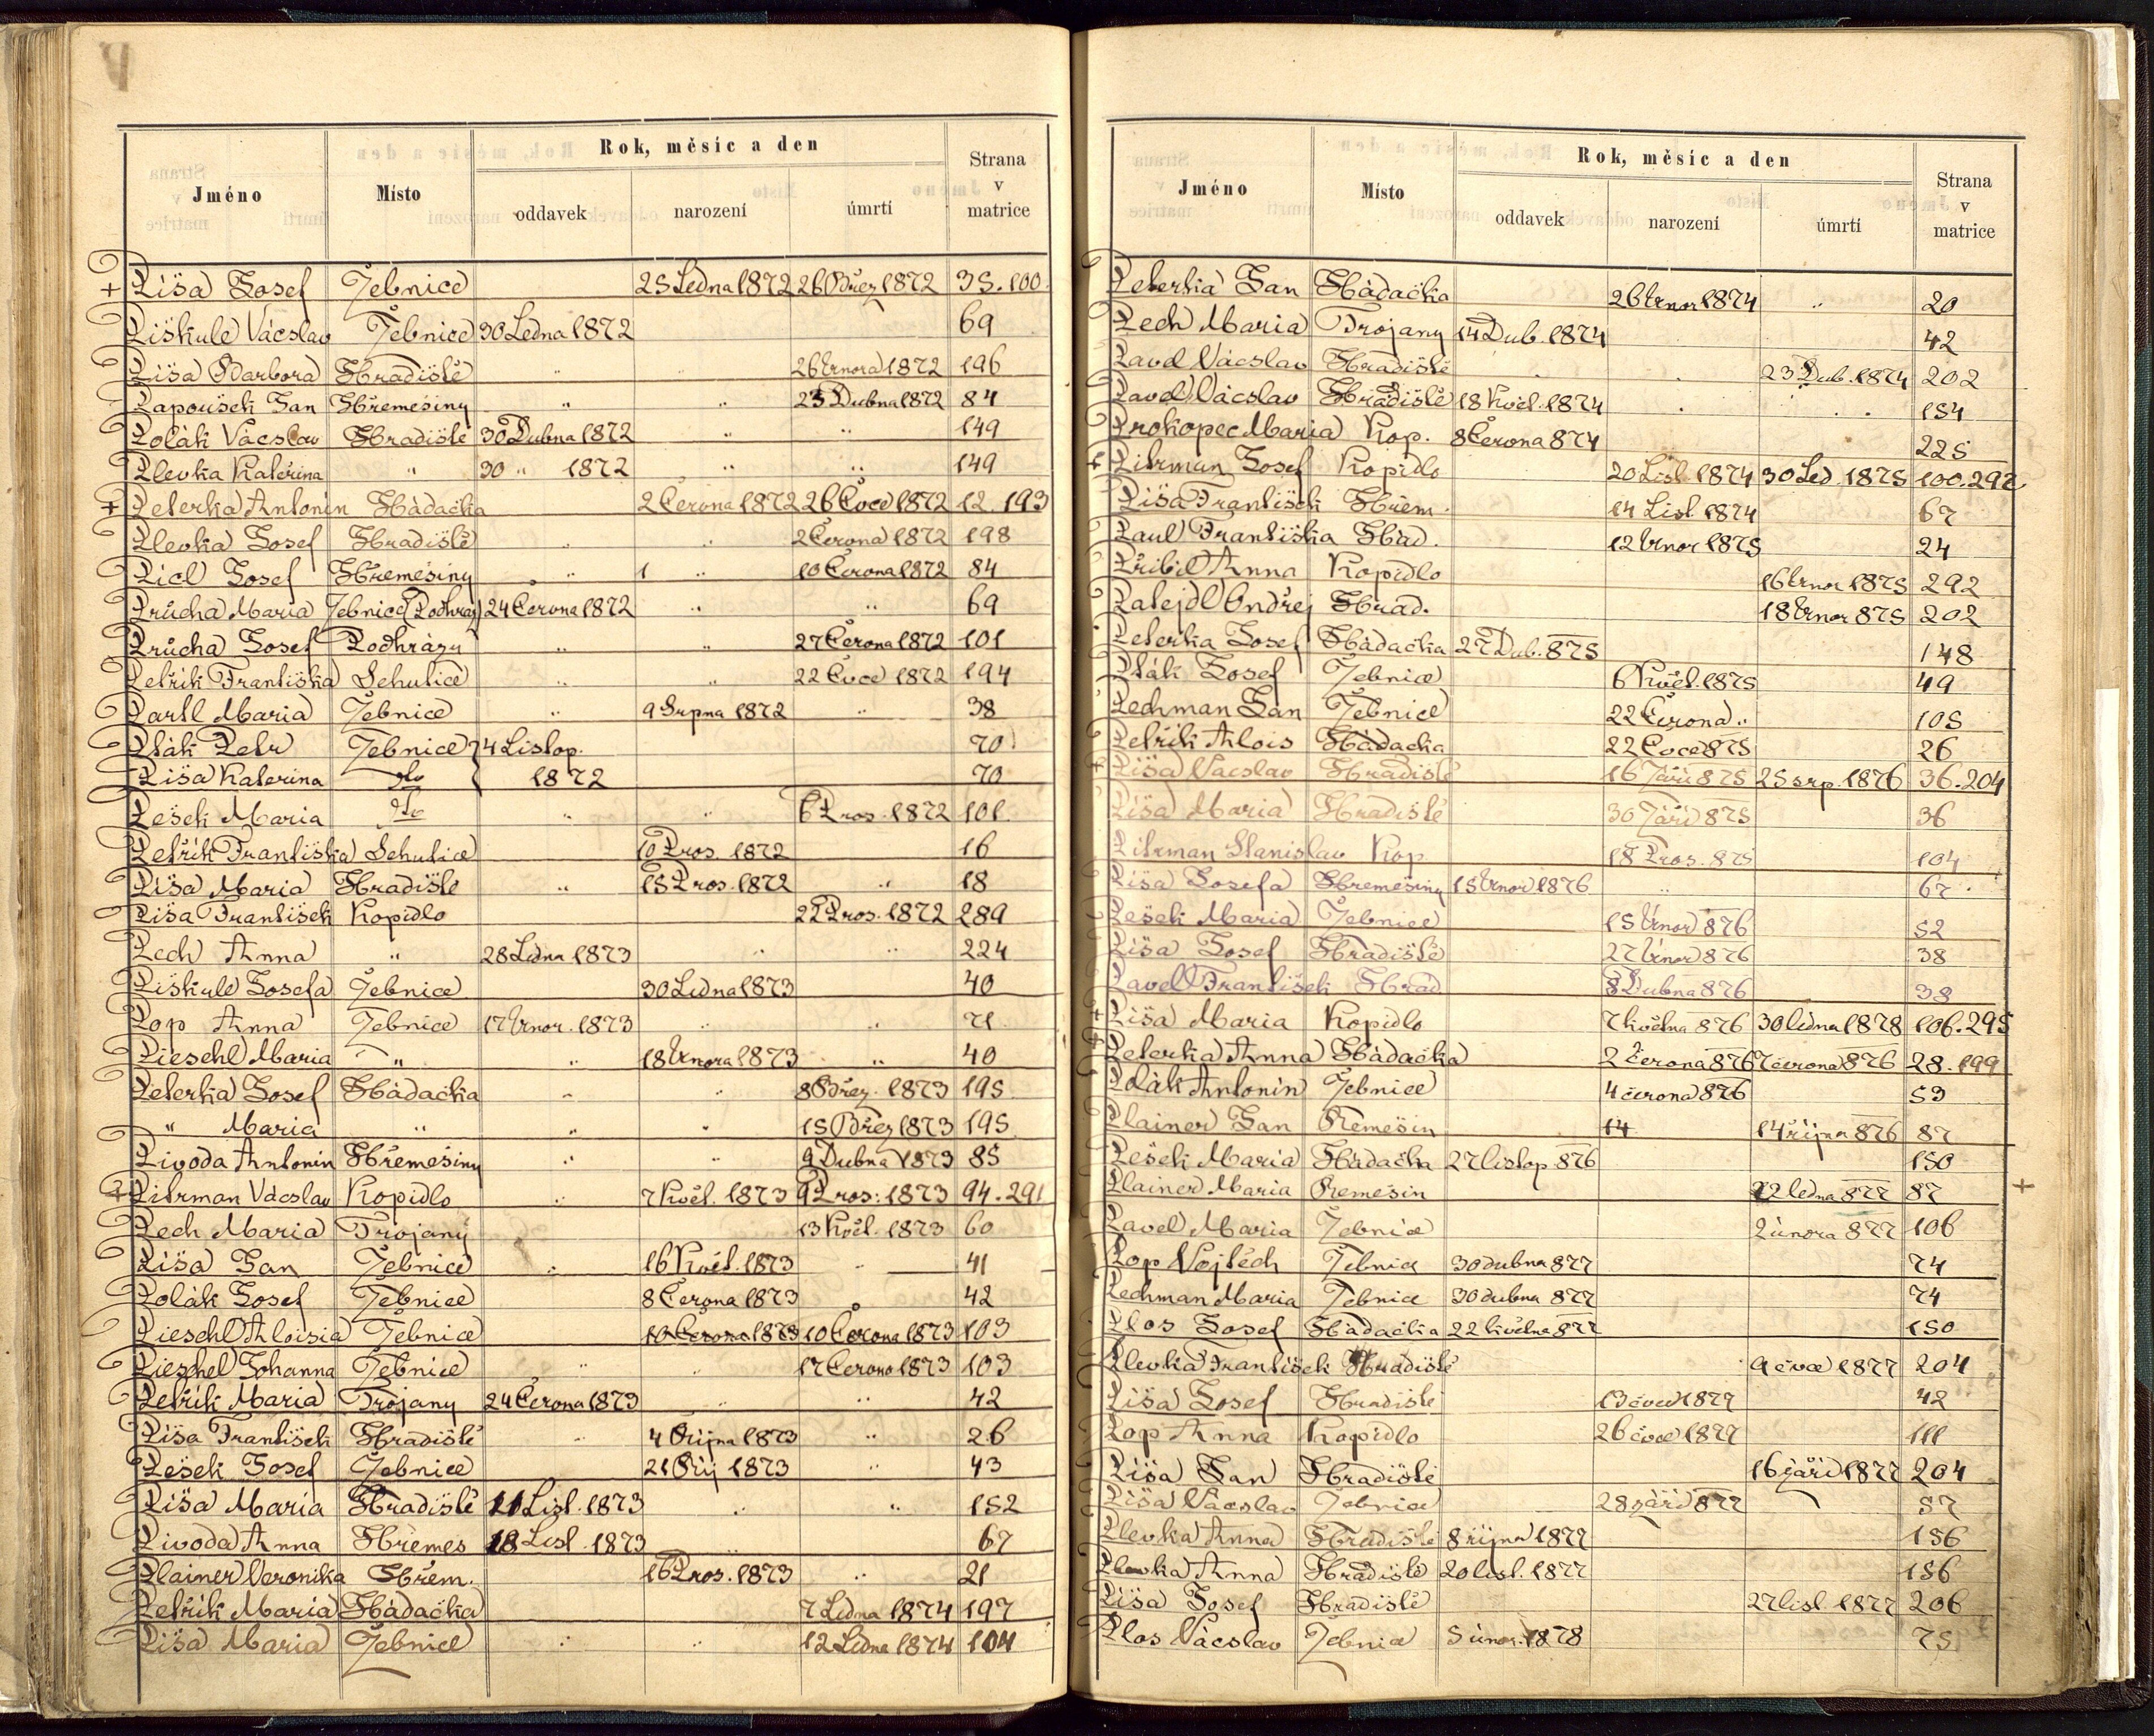 Rok, měsíc a den
Jméno Místo oddavek narození úmrtí Strana v matrice
+ Píša Josef Žebnice 25 Ledna 1872 26 Březn 1872 35.100
Piškule Vácslav Žebnice 30 Ledna 1872 69
Píša Barbora Hradiště 26 Února 1872 196
Papoušek Jan Hřemešiny 23 Dubna 1872 84
Polák Vácslav Hradiště 30 Dubna 1872 149
Plevka Kateřina " 30 " 1872 149
+ Peterka Antonín Hádačka 2 Června 1872 26 Čvce 1872 12.193
Plevka Josef Hradiště 2 Června 1872 198
Picl Josef Hřemešiny 10 Června 1872 84
Průcha Maria Žebnice (Podhráz) 24 Června 1872 69
Průcha Josef Podhrázy 27 Června 1872 101
Petřík Františka Sehutice 22 Čvce 1872 194
Partl Maria Žebnice 9 Srpna 1872 38
Pták Petr Žebnice 4 Listop. 70
Píša Kateřina dto 1872 70
Pešek Maria dto 6 Pros. 1872 101
Petřík Františka Sehutice 10 Pros. 1872 16
Píša Maria Hradiště 15 Pros. 1872 18
Píša František Kopidlo 22 Pros. 1872 289
Pech Anna " 28 Ledna 1873 224
Piškule Josefa Žebnice 30 Ledna 1873 40
Pop Anna Žebnice 17 Únor. 1873 71
Pieschl Maria " 18 Února 1873 40
Peterka Josef Hádačka 8 Březn. 1873 195
" Maria " 15 Březn 1873 195
Pivoda Antonín Hřemešiny 9 Dubna 1873 85
+ Pitrman Vácslav Kopidlo 7 Květ. 1873 9 Pros. 1873 94.291
Pech Maria Trojany 13 Květ. 1873 60
Píša Jan Žebnice 16 Květ. 1873 41
Polák Josef Žebnice 8 Června 1873 42
Pieschl Aloisia Žebnice 10 Června 1873 10 Června 1873 103
Pieschel Johanna Žebnice 17 Června 1873 103
Petřík Maria Trojany 24 Června 1873 42
Píša František Hradiště 4 Října 1873 26
Pešek Josef Žebnice 21 Říj 1873 43
Píša Maria Hradiště 11 List. 1873 152
Pivoda Anna Hřemeš 18 List. 1873 67
Plainer Veronika Hřem. 16 Pros. 1873 21
Petřík Maria Hádačka 7 Ledna 1874 197
Píša Maria Žebnice 12 Ledna 1874 104
Rok, měsíc a den
Jméno Místo oddavek narození úmrtí Strana v matrice
Peterka Jan Hádačka 26 Únor 1874 20
Pech Maria Trojany 14 Dub. 1874 42
Pavel Vácslav Hradiště 23 Dub. 1874 202
Pavel Vácslav Hradiště 18 Květ. 1874 154
Prokopec Maria Kop. 8 Června 874 225
+ Pitrman Josef Kopidlo 20 List. 1874 30 Led 1875 100.292
Píša František Hřem. 14 List. 1874 67
Paul Františka Hád. 12 Únor 1875 24
Přibil Anna Kopidlo 16 Únor 1875 292
Patejdl Ondřej Hrad. 18 Únor 875 202
Peterka Josef Hádačka 27 Dub. 875 148
Pták Josef Žebnice 6 Květ. 1875 49
Pechman Jan Žebnice 22 Června " 105
Petřík Alois Hádačka 22 Čvce 875 26
+ Píša Vácslav Hradiště 16 Září 875 25 srp. 1876 36.204
Píša Maria Hradiště 30 Září 875 36
Pitrman Stanislav Kop 18 Pros. 875 104
Píša Josefa Hřemešiny 15 Únor 1876 67
Pešek Maria Žebnice 15 Únor 876 52
Píša Josef Hradiště 27 Únor 876 38
Pavel František Hrad 8 Dubna 876 38
+ Píša Maria Kopidlo 7 května 876 30 ledna 1878 106.295
+ Peterka Anna Hádačka 2 června 876 7 června 876 28.199
Polák Antonín Žebnice 4 června 876 53
Plainer Jan Řemešín 14 14 října 876 87
Pešek Maria Hádačka 27 listop 876 150
Plainer Maria Řemešín 22 ledna 877 87 +
Pavel Maria Žebnice 2 února 877 106
Pop Vojtěch Žebnice 30 dubna 877 74
Pechman Maria Žebnice 30 dubna 877 74
Plos Josef Hádačka 22 května 877 150
Plevka František Hradiště 9 čvce 1877 204
Píša Josef Hradiště 13 čvce 1877 42
Pop Anna Kopidlo 26 čvce 1877 111
Píša Jan Hradiště 16 září 1877 204
Píša Vácslav Žebnice 28 září 877 57
Plevka Anna Hradiště 8 října 1877 156
Plevka Anna Hradiště 20 list. 1877 156
Píša Josef Hradiště 27 list. 1877 206
Plos Vácslav Žebnice 5 únor. 1878 75